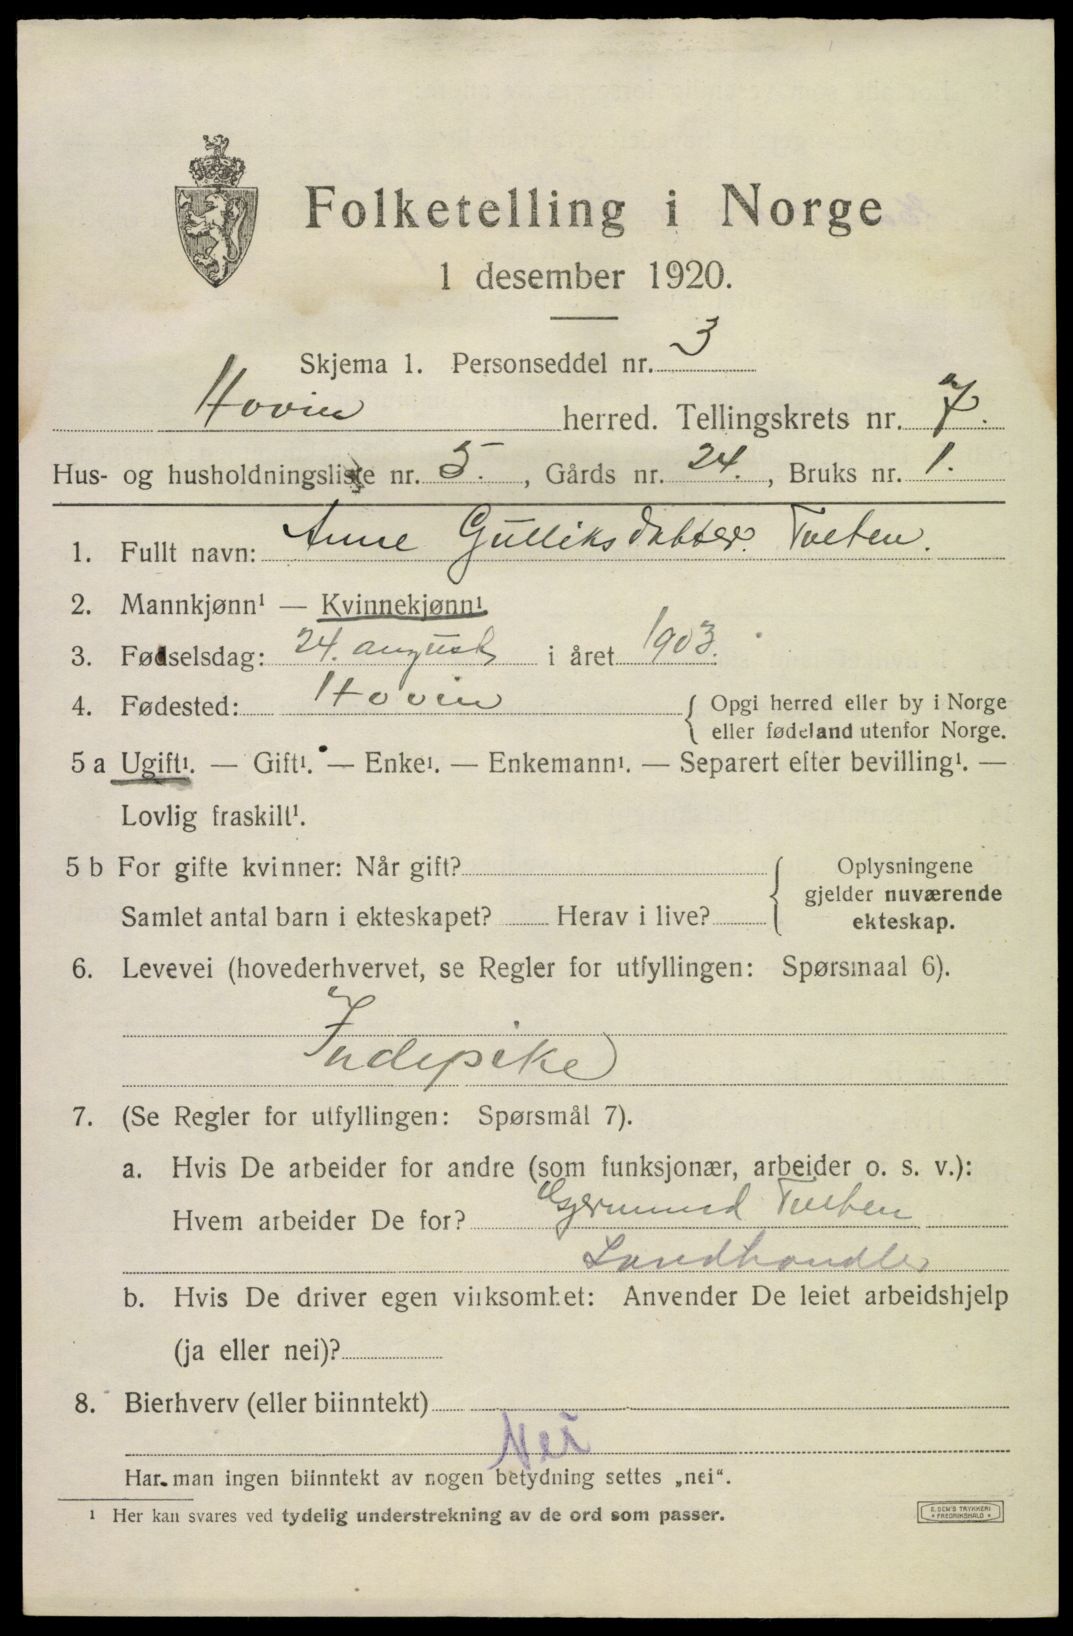 Folketelling i Norge
1 desember 1920.
Skjema 1. Personseddel nr. 3
Hovin herred. Tellingskrets nr. 7.
Hus- og husholdningsliste nr. 5., Gårds nr. 24., Bruks nr. 1.
1. Fullt navn: Anne Gulliksdatter Tveten.
2. Mannkjønn¹ — Kvinnekjønn¹
3. Fødselsdag: 24. august i året 1903.
4. Fødested: Hovin { Opgi herred eller by i Norge
eller fødeland utenfor Norge.
5 a Ugift¹. — Gift¹. — Enke¹. — Enkemann¹. — Separert efter bevilling¹. —
Lovlig fraskilt¹.
5 b For gifte kvinner: Når gift? { Oplysningene
gjelder nuværende
Samlet antal barn i ekteskapet? Herav i live?
ekteskap.
6. Levevei (hovederhvervet, se Regler for utfyllingen: Spørsmaal 6).
Indepike
7. (Se Regler for utfyllingen: Spørsmål 7).
a. Hvis De arbeider for andre (som funksjonær, arbeider o. s. v.):
Hvem arbeider De for? Gjermund Tveten
Landhandler
b. Hvis De driver egen virksomhet: Anvender De leiet arbeidshjelp
(ja eller nei)?
8. Bierhverv (eller biinntekt)
Nei
Har man ingen biinntekt av nogen betydning settes „nei“.
¹ Her kan svares ved tydelig understrekning av de ord som passer.
E. SEM'S TRYKKERI
• FREDRIKSHALD •